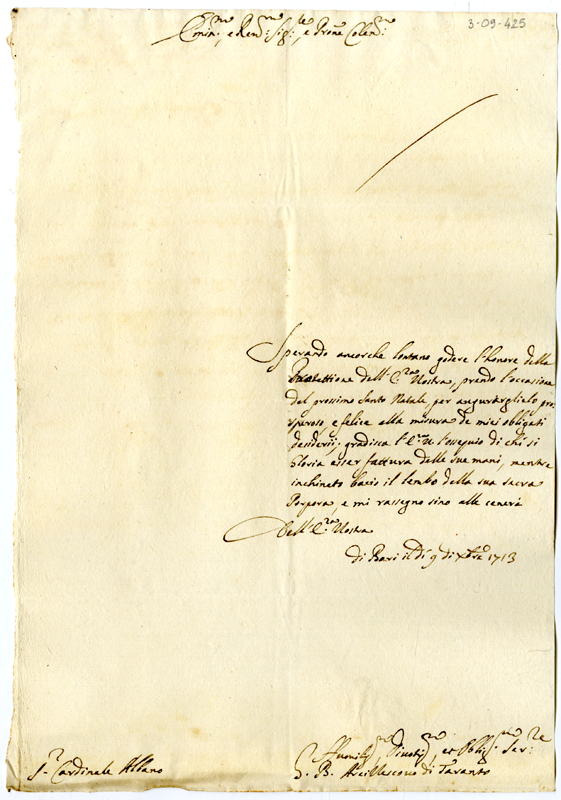 3-09-425
Emin:mo e Rend:mo Sig:re e Prone Colend:mo
Sperando ancorche lontano godere l'honore della
Protettione dell'E:za Vostra, prendo l'occasione
del prossimo Santo Natale per augurarglielo pro-
speroso e felice alla misura de miei obligati
desiderij; gradisca l'E:za V. l'ossequio di chi si
gloria esser fattura delle sue mani, mentre
inchinato bacio il lembo della sua sacra
Porpora, e mi rassegno sino alle ceneri
Dell'E:za Vostra
di Bari il dì 9 di Xbre 1713
Humiliss:mo Divotiss:mo et Oblig:mo Ser:re
S:r Cardinale Albano
G. B. Arcivescovo di Taranto